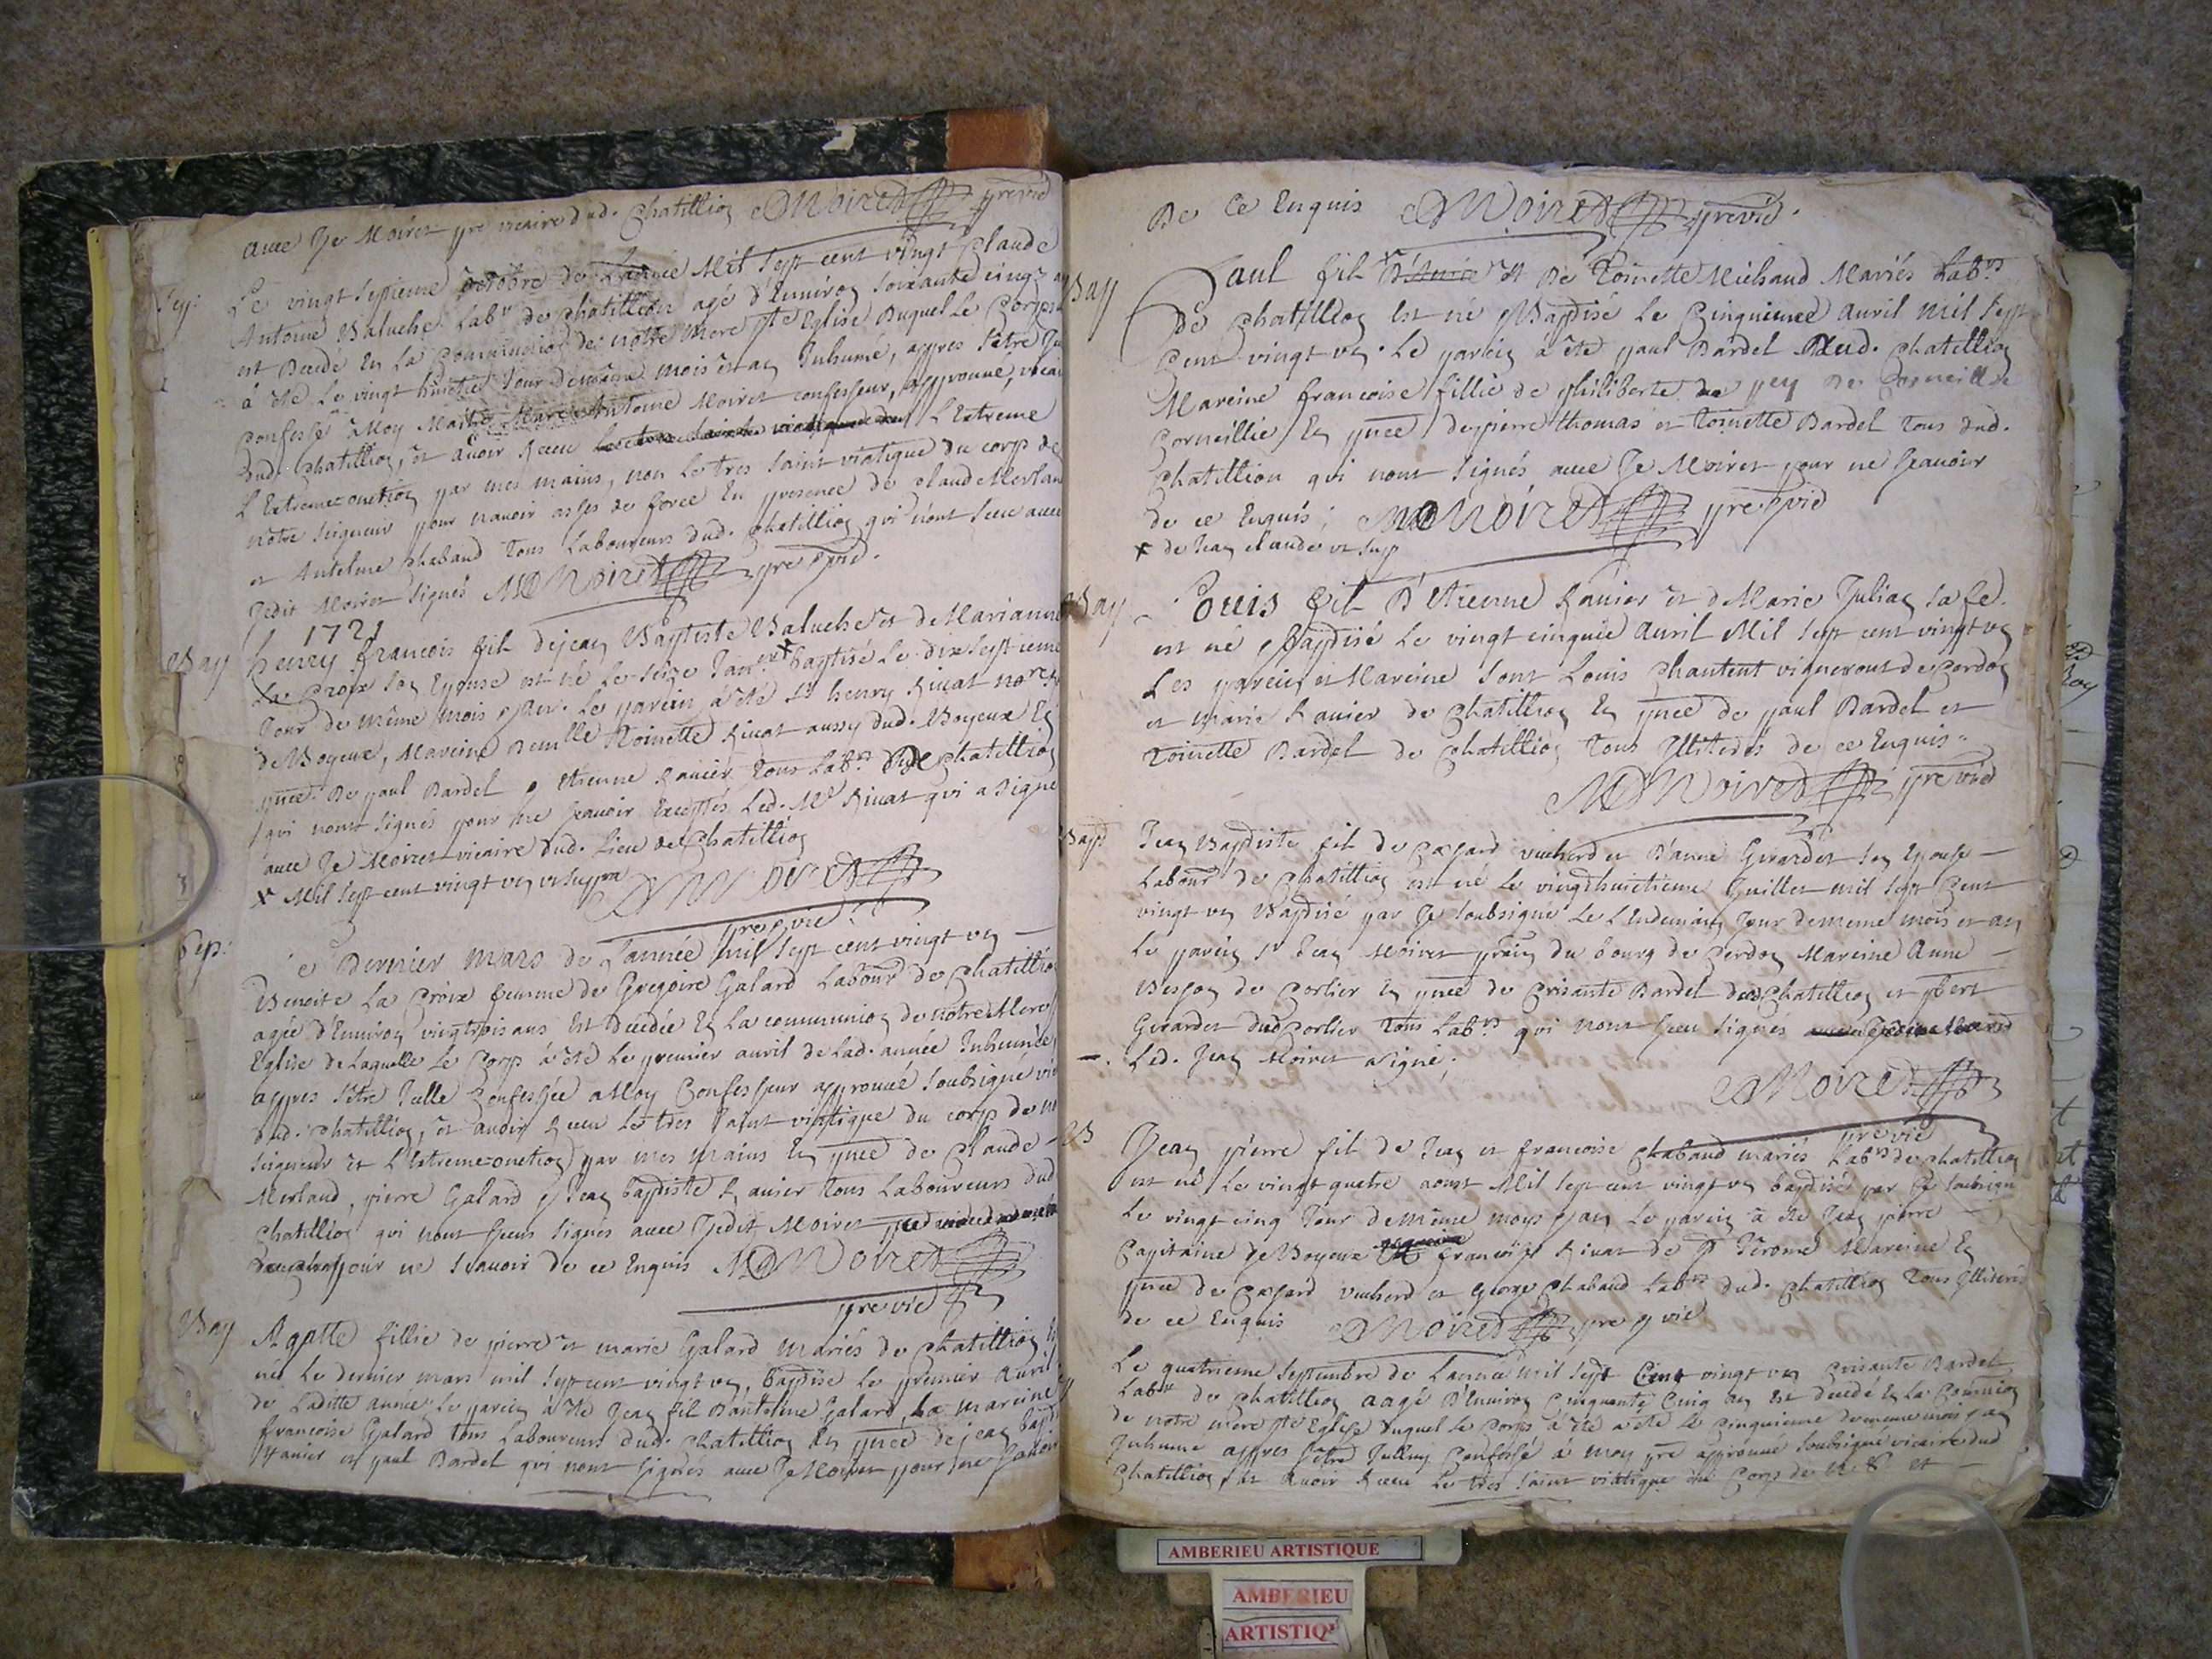 avec Je Moiret pre vicaire dud. Chatillion MMoiret pre vic
Sep:
Le vingt septieme octobre de L'année Mil sept cent vingt Claude
Antoine Baluche Labr de Chatillion agé d'Environ soixante cinq
est Decedé En La Communion de notre Mere ste Eglise Duquel Le Corps
à été Le vingt huitie Jour de même mois et an Inhumé, appres s'etre
Confessé à Moy Maitre Marc Antoine Moiret confesseur, approuvé, vicai
dud. Chatillion, et avoir Receu L'Extreme
L'Extreme-onction par mes mains, non Le tres saint viatique du corps de
notre seigneur pour n'avoir asses de force En presence de Claude Merlan
et Antelme Chaband Tous Laboureurs dud. Chatillion qui n'ont sceu avec
Jedit Moiret signés MMoiret pre vic.
1721
Bap
henry francois fil de jean Baptiste Baluche et de Marianne
La Croix son Epouse est né Le seize Janer * baptisé Le dix septieme
Jour de même mois & an. Le parein à été sr henry Rivat nore R
de Boyeux, Mareine Demlle Toinette Rivat aussy dud. Boyeux En
pnce. De paul Bardel & Etienne Ravier Tous Labrs de Chatillion
qui nont signés pour ne scavoir Exceptés Led. Me Rivat qui a signé
avec Je Moiret vicaire dud. Lieu de Chatillion
* Mil sept cent vingt un ut supra MMoiret
pre vic
Sep:
Le Dernier mars de L'année mil sept cent vingt un —
Benoite La Croix femme de Gregoire Galard Labour de Chatillion
agée d'Environ vingt trois ans Est Decedée En La communion de notre Mere
Eglise de Laquelle Le Corp à été Le premier avril de Lad. année Inhumée
appres s'etre Jcelle Confessée à Moy Confesseur approuvé soubsigné vic
dud. Chatillion, et avoir Receu Le tres saint viatique du corps de
seigneur et L'Extreme-onction par mes mains En pnce de Claude -
Merland, pierre Galard & Jean baptiste Ravier Tous Laboureurs dud
Chatillion qui nont sceus signés avec Jedit Moiret
pour ne scavoir de ce Enquis MMoiret
pre vic
Bap
Agatte fillie de pierre et marie Galard mariés de Chatillion
née Le dernier mars mil sept cent vingt un, baptisée Le premier avril
de Laditte année Le parein à été Jean fil d'antelme Galard, La mareine
francoise Galard tous Laboureurs dud. Chatillion En pnce de jean bapt
Ravier et paul Bardel qui nont signés avec Je Moiret pour ne scavoir
De Ce Enquis MMoiret pre vic.
Bap
Paul fil * et De Toinette Michaud Mariés Labrs
de Chatillion Est né & Baptisé Le Cinquieme avril mil sept
Cent vingt un. Le parein à été paul Bardel dud. Chatillion
Mareine francoise fillie de philiberte de
Corneillie En pnce de pierre thomas et Toinette Bardel Tous dud.
Chatillion qui nont signés avec Je Moiret pour ne scavoir
de ce Enquis; MMoiret pre vic
* de Jean claude ut sup
Bap
Louis fil d'Etienne Ravier et de Marie Julian sa fe.
est né & Baptisé Le vingt cinquie avril Mil sept cent vingt un
Les parein et Mareine sont Louis Chantent vigneront de Cerdon
et marie Ravier de Chatillion En pnce de paul Bardel et
Toinette Bardel de Chatillion Tous Jlliterés de ce Enquis -
MMoiret pre vic
Bap
Jean Baptiste fil de Gaspard vucherd et d'anne Girardet son Epouse -
Labourrs de Chatillion est né Le vingt huitieme Juillet mil sept Cent
vingt un Baptisé par Je soubsigné Le L'Endemain Jour de meme mois et an
Le parein sr Jean Moiret du bourg de Cerdon Mareine Anne -
de Corlier En pnce de Crisante Bardel dud Chatillion et
Girardet dud Corlier Tous Labrs qui nont sceu signés
Led. Jean Moiret a signé;
MMoiret
pre vic
B
Jean pierre fil de Jean et francoise Chaband mariés Labrs de Chatillion
est né Le vingt quatre aoust Mil sept cent vingt un baptisé par Je soubsigné
Le vingt cinq Jour de même moys & an Le parein à été Jean pierre -
Capitaine de Boyeux francoise Rivat de st Jerome Mareine En
pnce de Gaspard vucherd et George Chaband Labrs dud. Chatillion Tous Jlliterés
de ce Enquis MMoiret pre & vic
Le quatrieme septembre de L'année mil sept Cent vingt un Crisante Bardel
Labour de Chatillion aagé d'Environ Cinquante Cinq an Est decedé En La Comnion
de notre mere ste Eglise duquel Le Corps à été à été Le Cinquieme de meme mois & an
Jnhumé appres s'etre Jcelluy Confessé à moy pre approuvé soubsigné vicaire dud
Chatillion, et avoir Receu Le tres saint viatique du Corp de N. S. et -
AMBERIEU ARTISTIQUE
AMBERIEU
ARTISTIQ